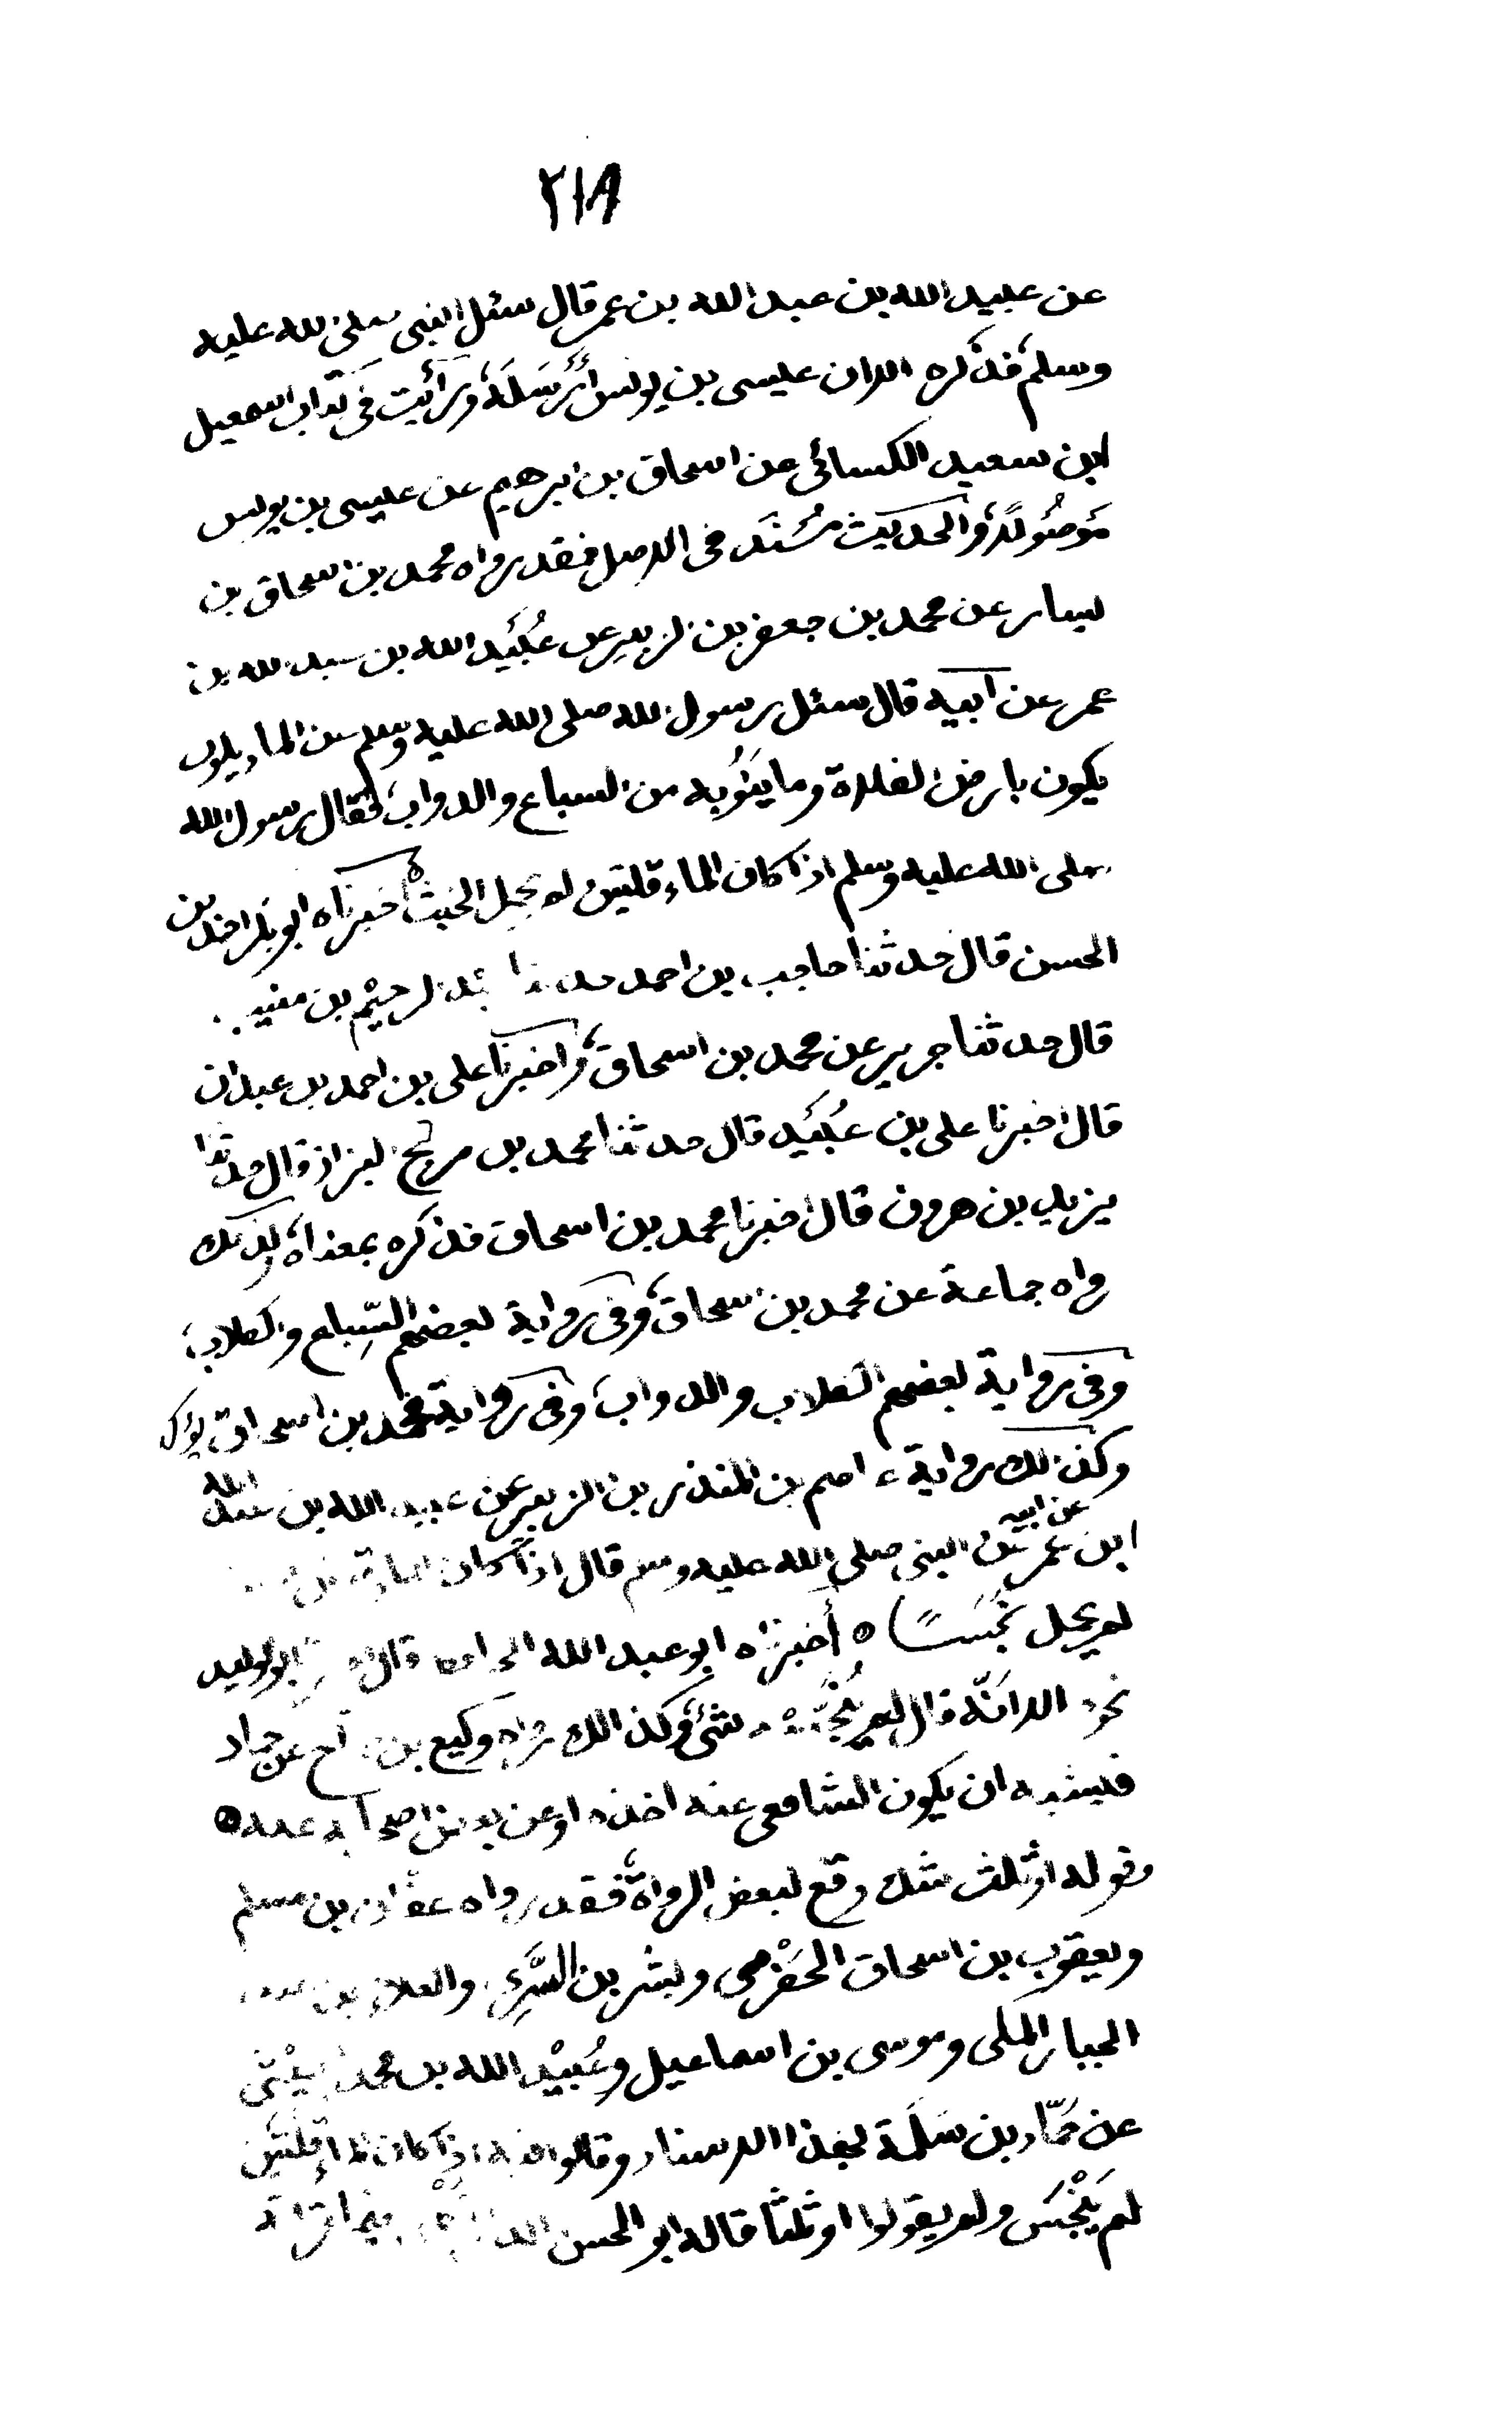 ٢١٨
عن عبيد الله بن عبد الله بن عمر قال سئل النبي صلى الله عليه
وسلم فذكره الا ان عيسى بن يونس أَرْسَلَهُ ورأيت في كتاب اسمعيل
ابن سعيد الكسائي عن اسحاق بن ابرهيم عن عيسى بن يونس
مَوصُولًا والحديث مُسْنَد في الاصل فقد رواه محمد بن اسحاق بن
يسار عن محمد بن جعفر بن الزبير عن عُبَيْد الله بن عبد الله بن
عمر عن أبيه قال سئل رسول الله صلى الله عليه وسلم عن الماء يكون
يكون بارض الفلاة وما يَنُوبه من السباع والدواب فقال رسول الله
صلى الله عليه وسلم اذا كان الماء قلتين لم يحمل الخبث أخبرناه ابو بكر احمد بن
الحسن قال حدثنا حاجب بن احمد حدثنا عبد الرحيم بن منيب
قال حدثنا جرير عن محمد بن اسحاق وأخبرنا علي بن احمد بن عبدان
قال اخبرنا علي بن عُبَيْد قال حدثنا محمد بن البزاز قال حدثنا
يزيد بن هرون قال اخبرنا محمد بن اسحاق فذكره بمعناه وكذلك
رواه جماعة عن محمد بن اسحاق وفي رواية بعضهم السِّباع والكلاب
وفي رواية بعضهم الكلاب والدواب وفي رواية محمد بن اسحاق
وكذلك رواية عاصم بن المنذر بن الزبير عن عبيد الله بن عبد الله
ابن عمر عن ابيه عن النبي صلى الله عليه وسلم قال اذا كان الماء
لم يحمل نَجَسًا ه أخبرناه ابو عبد الله الحافظ قال ابو الوليد
نحوه الا انَّه قال لم يُنَجِّسْه شئ وكذلك رواه وكيع بن الجراح عن حماد
فيشبه ان يكون الشافعي عنه اخذه او عن من اصحابه عنه ه
وقوله او ثلث شك وقع لبعض الرواة فقد رواه عفان بن مسلم
ويعقوب بن اسحاق الحَضْرمي وبشر بن السَّرِي والعلاء بن عبد
الجبار المكي وموسى بن اسماعيل وعُبَيْد الله بن محمد العَيْشي
عن حَمَّاد بن سَلَمَة بهذا الاسناد وقالوا فيه اذا كان الماء قُلَّتَيْن
لم يَنْجُس ولم يقولوا او ثلثا قاله ابو الحسن فيما قرأته